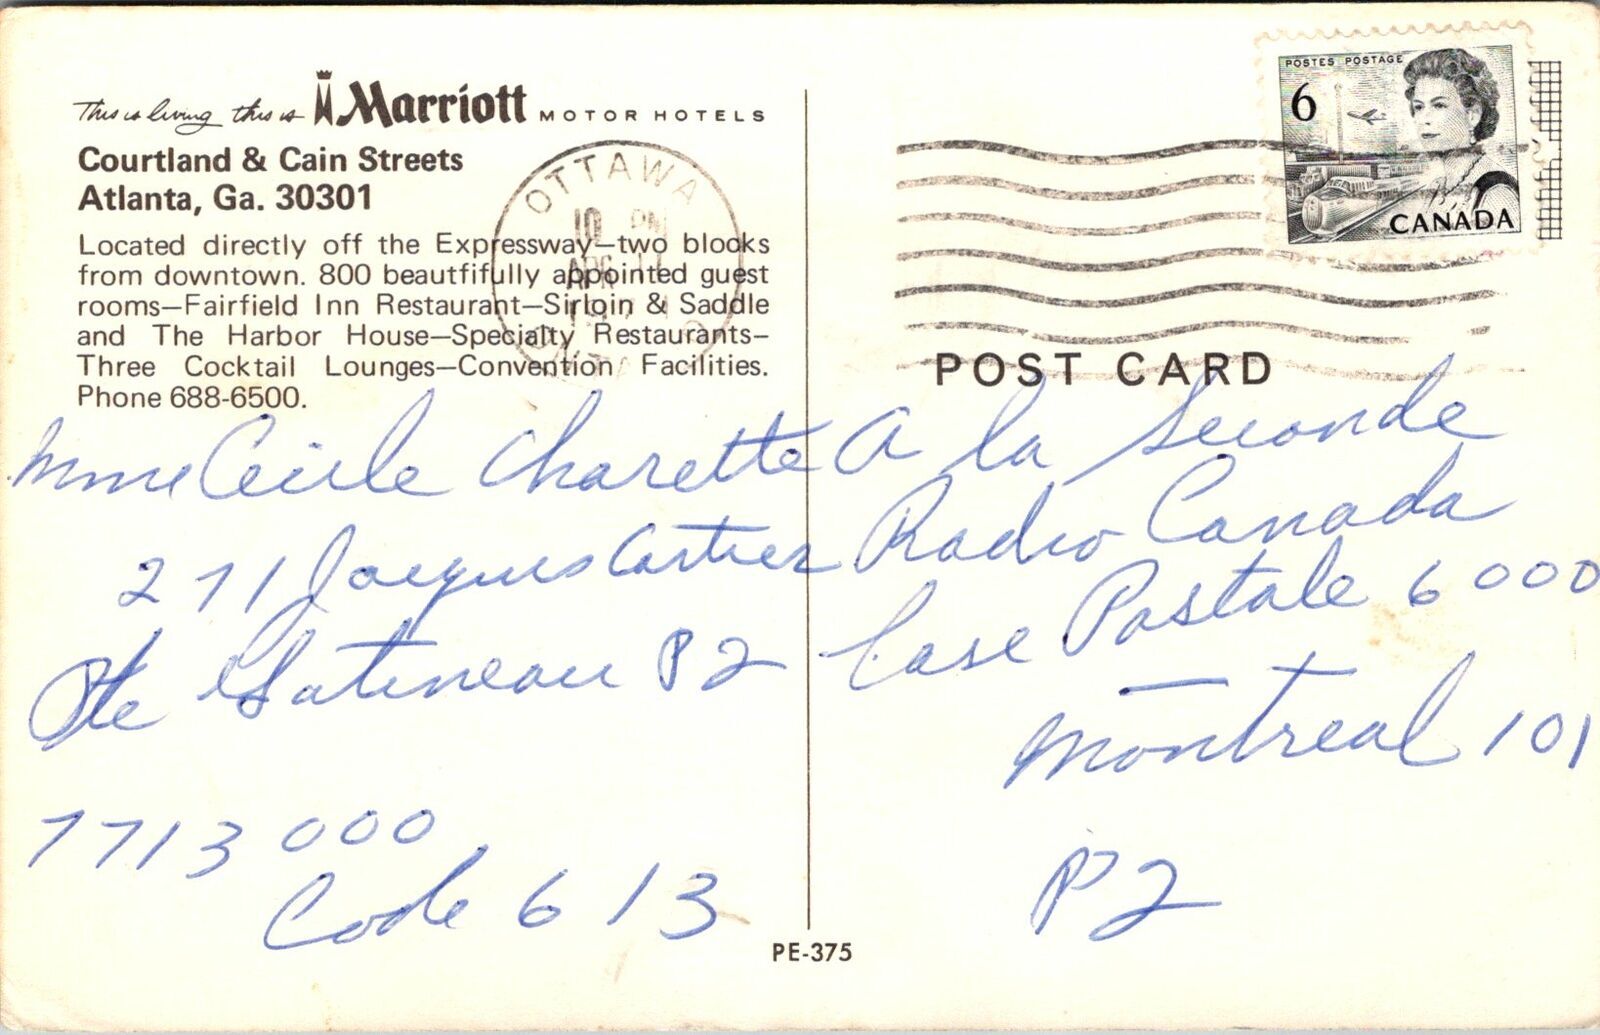 This is living this is Marriott MOTOR HOTELS
Courtland & Cain Streets
Atlanta, Ga. 30301
Located directly off the Expressway—two blocks
from downtown. 800 beautfifully appointed guest
rooms—Fairfield Inn Restaurant—Sirloin & Saddle
and The Harbor House—Specialty Restaurants—
Three Cocktail Lounges—Convention Facilities.
Phone 688-6500.
OTTAWA
10 PM
POSTES POSTAGE
6
CANADA
POST CARD
Mme Cécile Charette
271 Jacques Cartier
Pte Gatineau P2
7713000
Code 613
A la Seconde
Radio Canada
Case Postale 6000
Montreal 101
P2
PE-375